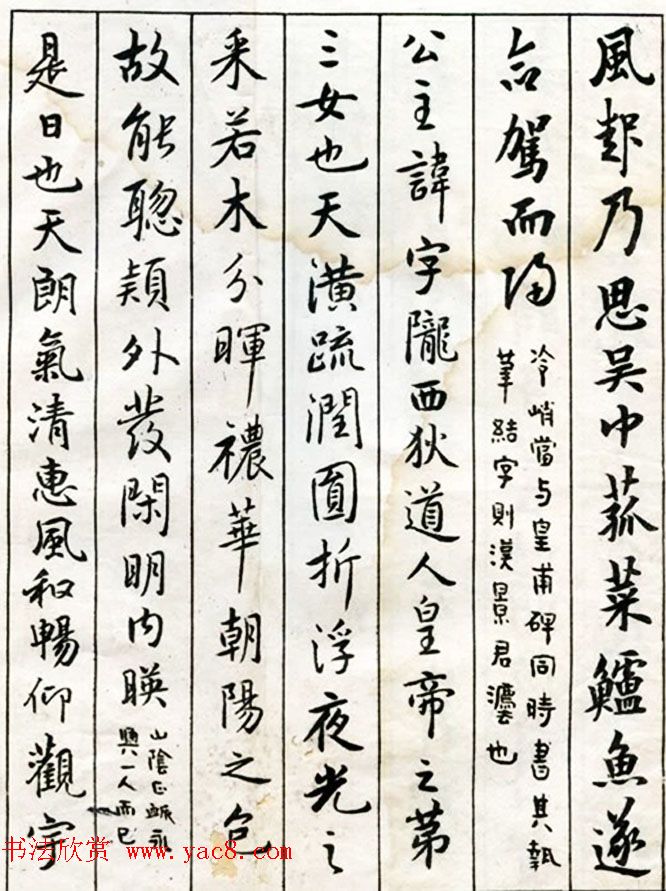 風起乃思吳中菰菜鱸魚遂
命駕而歸
冷峭當与皇甫碑同時書其執
筆結字則漢景君灋也
公主諱字隴西狄道人皇帝之第
三女也天潢疏潤圓折浮夜光之
采若木分暉襛華朝陽之色
故能聰穎外發閑明內暎
山陰正脈永
興一人而已
是日也天朗氣清惠風和暢仰觀宇
书法欣赏 www.yac8.com